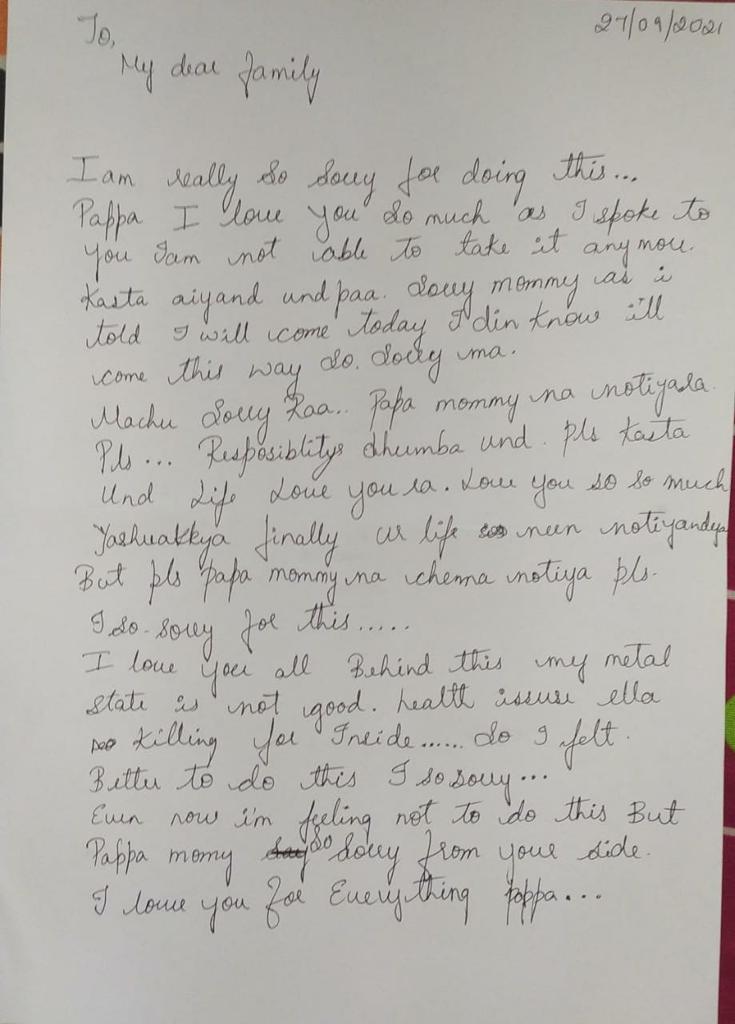 27/09/2021
To,
My dear family
I am really so sorry for doing this...
Pappa I love you so much as I spoke to
you Iam not able to take it anymore.
Kasta aiyand und paa. Sorry mommy as i
told I will come today I din know i'll
come this way So. Sorry ma.
Machu Sorry Raa.. Papa mommy na notiyala.
Pls... Resposiblitys dhumba und. Pls Kasta
Und Life Love you ra. Love you so so much
Yashuakkya finally ur life neen notiyandya
But pls papa mommy na chenna notiya pls.
I so-sorry for this.....
I love you all Behind this my metal
state is not good. health issuse ella
Killing for Inside...... So I felt.
Better to do this I so sorry...
Even now i'm feeling not to do this But
Pappa momy so Sorry from your side.
I love you for Everything pappa...